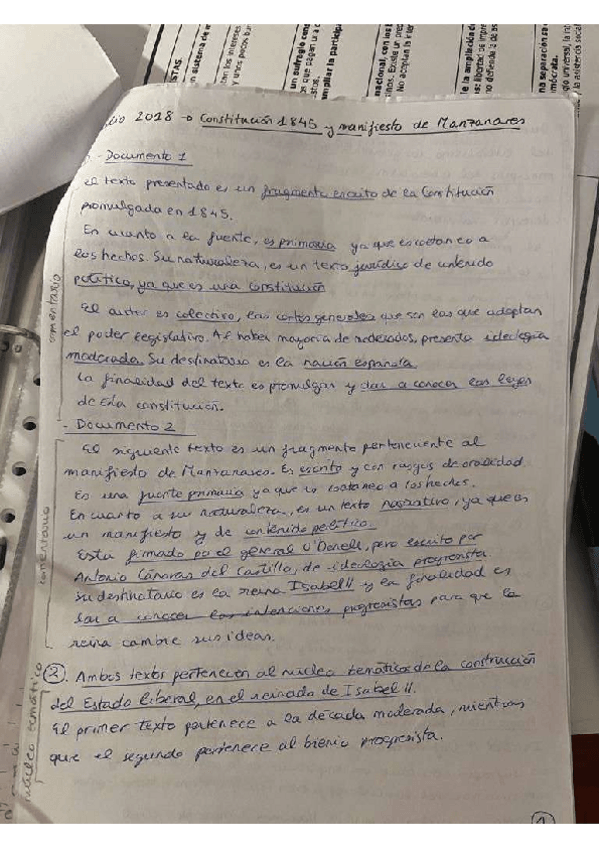 STAS.
sistema de
un sufragio cens
ampliar la particip
nacional, con los
No aceptan la
e la ampliación d
na separación
universal, la
2018 → Constitución 1845 y manifiesto de Manzanares
- Documento 1
El texto presentado es un fragmento escrito de la Constitución
promulgada en 1845.
En cuanto a la fuente, es primaria ya que es coetaneo a
los hechos. Su naturaleza, es un texto jurídico de contenido
político, ya que es una constitución
El autor es colectivo, las cortes generales que son las que adoptan
el poder legislativo. Al haber mayoría de moderados, presenta ideología
moderada. Su destinatario es la nación española.
La finalidad del texto es promulgar y dar a conocer las leyes
de esta constitución.
comentario
- Documento 2
El siguiente texto es un fragmento perteneciente al
manifiesto de Manzanares. Es escrito y con rasgos de oralidad
Es una fuente primaria ya que es coetaneo a los hechos.
En cuanto a su naturaleza, es un texto narrativo, ya que es
un manifiesto y de contenido político.
Esta firmado por el general O'Donell, pero escrito por
Antonio Cánovas del Castillo, de ideologia progresista
su destinatario es la reina Isabel II y la finalidad es
dar a conocer las intenciones progresistas para que la
reina cambie sus ideas.
comentario
2. Ambos textos pertenecen al núcleo temático de la construcción
del Estado liberal, en el reinado de Isabel II.
El primer texto pertenece a la década moderada, mientras
que el segundo pertenece al bienio progresista.
núcleo temático
1